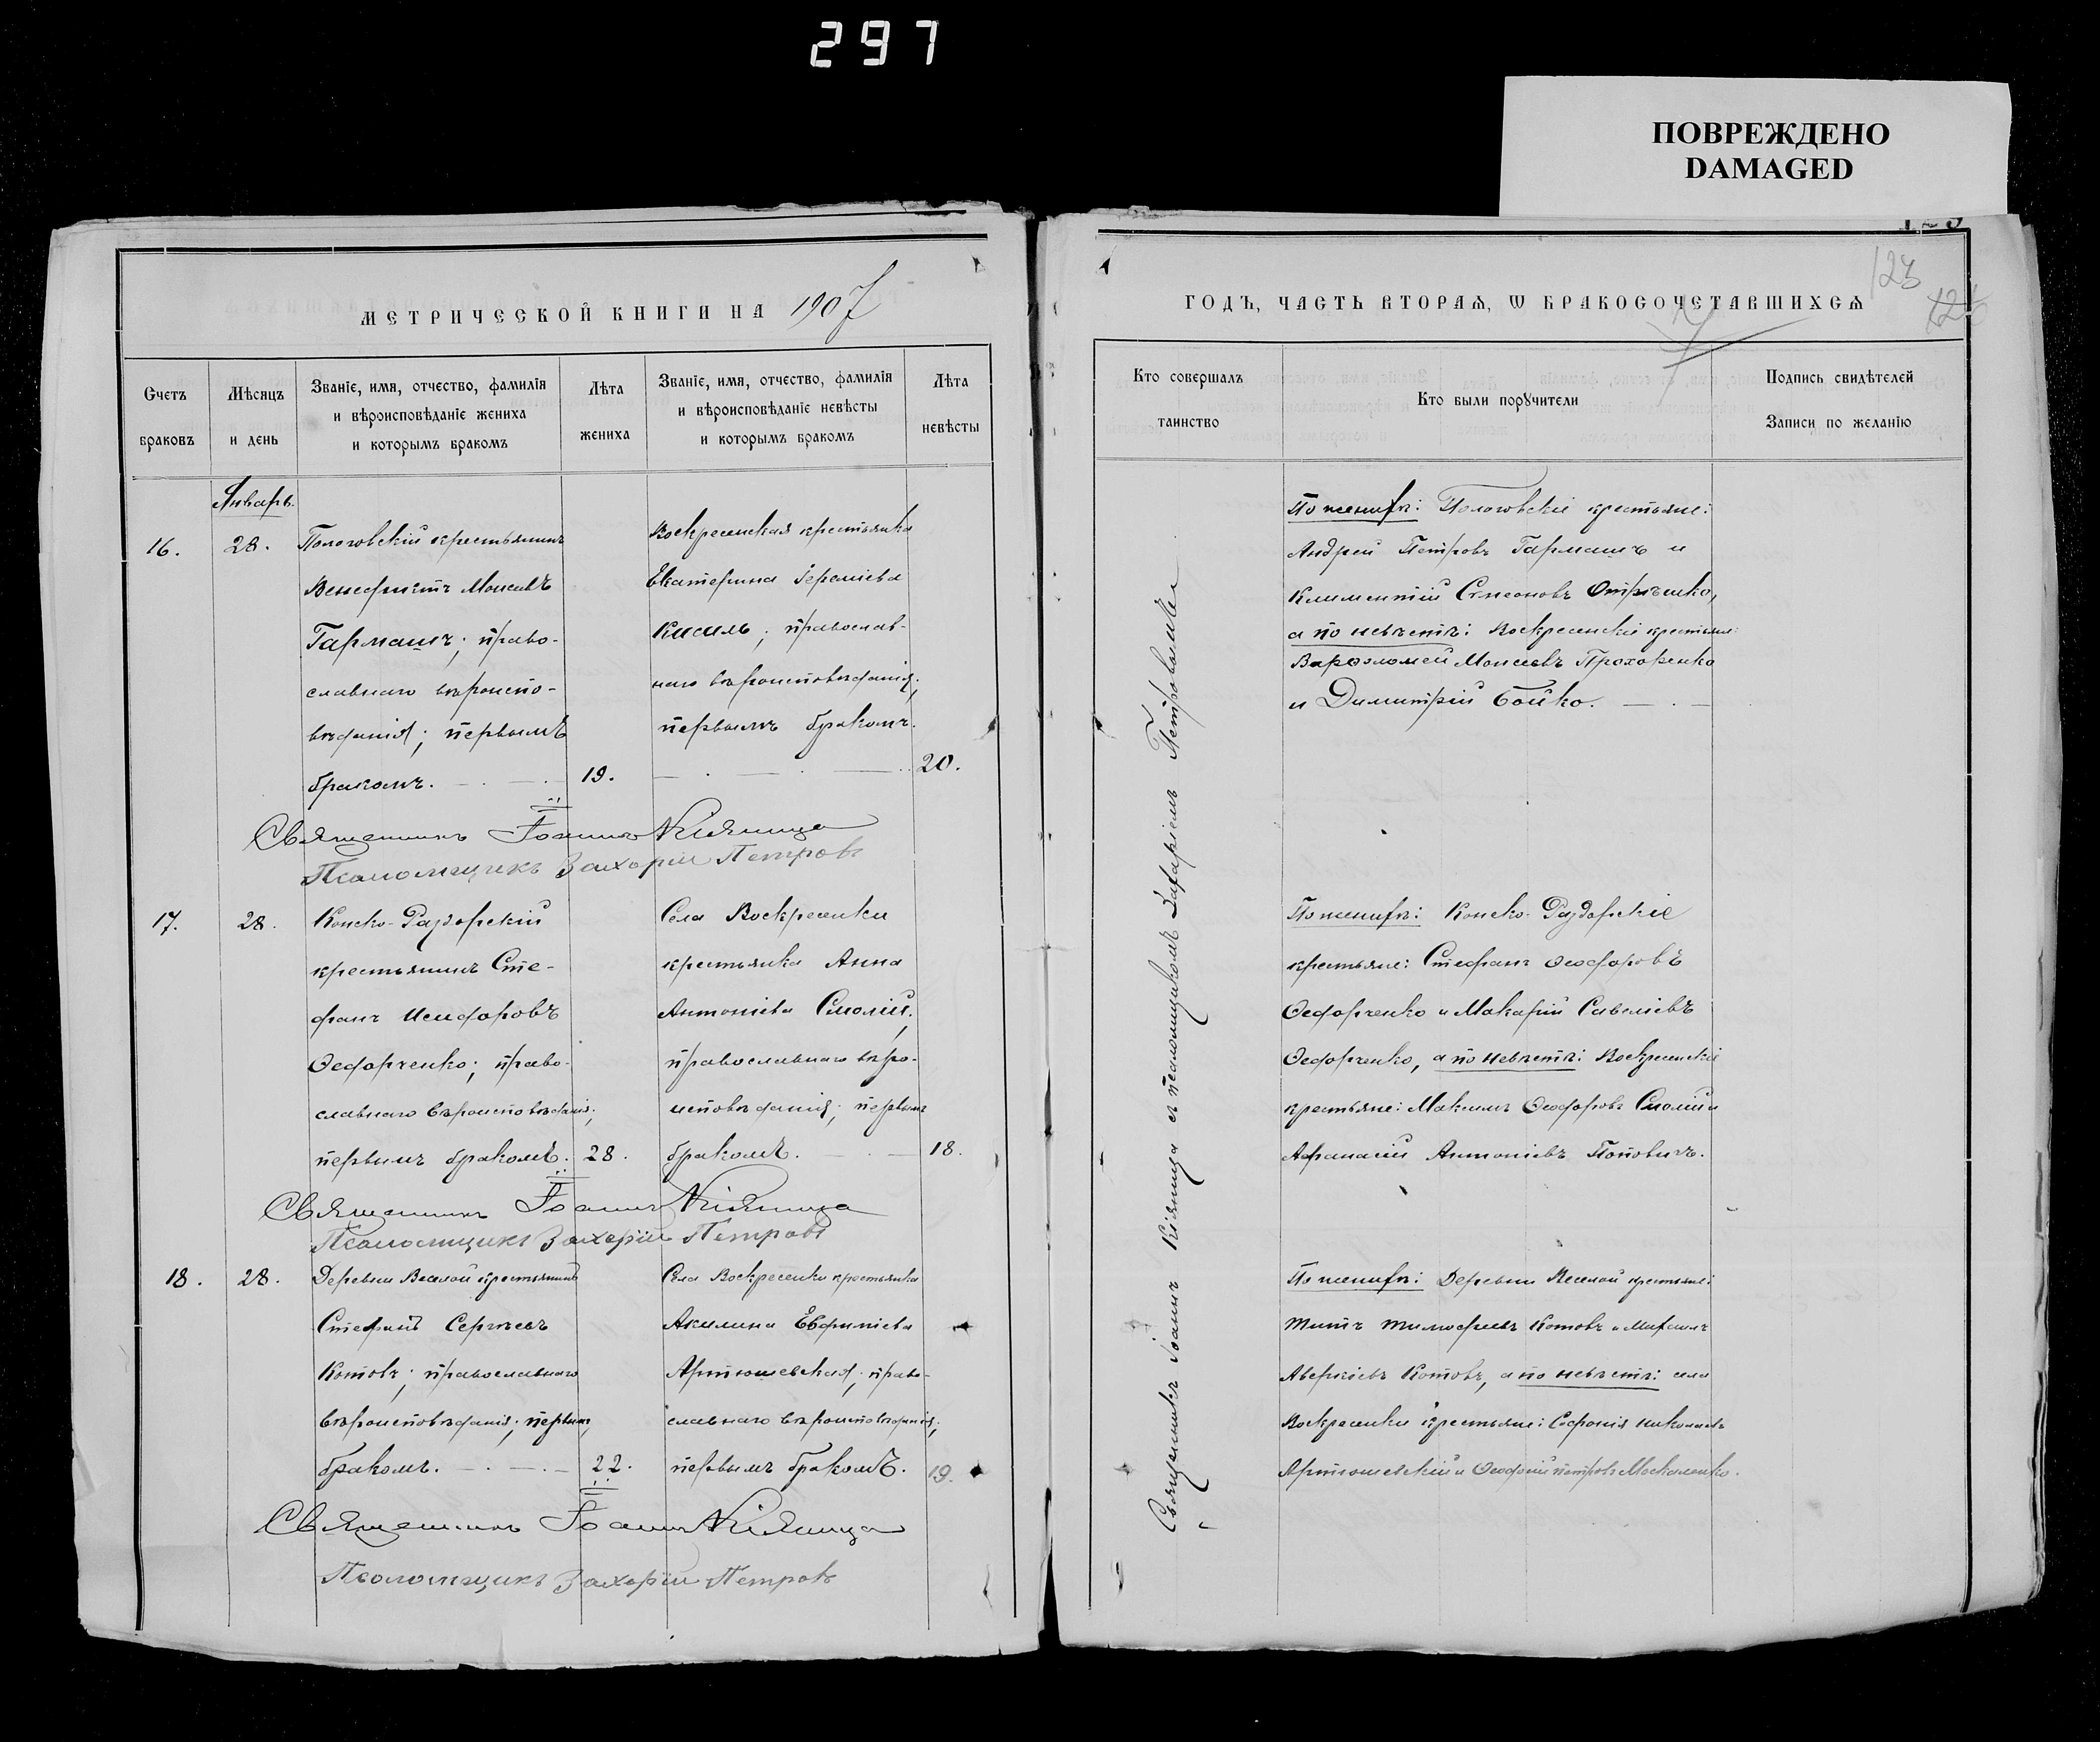 297
ПОВРЕЖДЕНО
DAMAGED
МЕТРИЧЕСКОЙ КНИГИ НА 1907
Счетъ браковъ
Мѣсяцъ и день
Званіе, имя, отчество, фамилія
и вѣроисповѣданіе жениха
и которымъ бракомъ
Лѣта жениха
Званіе, имя, отчество, фамилія
и вѣроисповѣданіе невѣсты
и которымъ бракомъ
Лѣта невѣсты
Январь.
16.
28.
Пологовскій крестьянинъ
Венедиктъ Моисеевъ
Гармашъ; право-
славнаго вѣроиспо-
вѣданія; первымъ
бракомъ.
19.
Воскресенская крестьянка
Екатерина
Кисиль; православ-
наго вѣроисповѣданія;
первымъ бракомъ.
20.
Священникъ Іоаннъ Кіяница
Псаломщикъ Захарій Петровъ
17.
28.
Конско-Раздорскій
крестьянинъ Сте-
фанъ Исидоровъ
Ѳедорченко; право-
славнаго вѣроисповѣданія;
первымъ бракомъ.
28.
Села Воскресенки
крестьянка Анна
Антоніева Смолій;
православнаго вѣро-
исповѣданія; первымъ
бракомъ.
18.
Священникъ Іоаннъ Кіяница
Псаломщикъ Захарій Петровъ
18.
28.
Деревни Веселой крестьянинъ
Стефанъ Сергѣевъ
Котовъ; православнаго
вѣроисповѣданія; первымъ
бракомъ.
22.
Села Воскресенки крестьянка
Акилина Евфиміева
Артюшевская; право-
славнаго вѣроисповѣданія;
первымъ бракомъ.
19.
Священникъ Іоаннъ Кіяница
Псаломщикъ Захарій Петровъ
123
ГОДЪ, ЧАСТЬ ВТОРАѦ, Ѡ БРАКОСОЧЕТАВШИХСѦ
Кто совершалъ
таинство
Кто были порꙋчители
Подпись свидѣтелей
Записи по желанію
Священникъ Іоаннъ Кіяница съ псаломщикомъ Захаріемъ Петровымъ
По женихѣ: Пологовскіе крестьяне:
Андрей Петровъ Гармашъ и
Климентій Симеоновъ
а по невѣстѣ: Воскресенскіе крестьяне:
Варѳоломей Моисеевъ Прохоренко
и Димитрій Бойко.
По женихѣ: Конско-Раздорскіе
крестьяне: Стефанъ Ѳеодоровъ
Ѳедорченко и Макарій Савеліевъ
Ѳедорченко, а по невѣстѣ: Воскресенскіе
крестьяне: Максимъ Ѳеодоровъ Смолій и
Аѳанасій Антоніевъ Поповичъ.
По женихѣ: Деревни Веселой крестьяне:
Титъ Тимоѳеевъ Котовъ и Михаилъ
Аверкіевъ Котовъ, а по невѣстѣ: села
Воскресенки крестьяне: Софроній Николаевъ
Артюшевскій и Ѳеодосій Петровъ Москаленко.